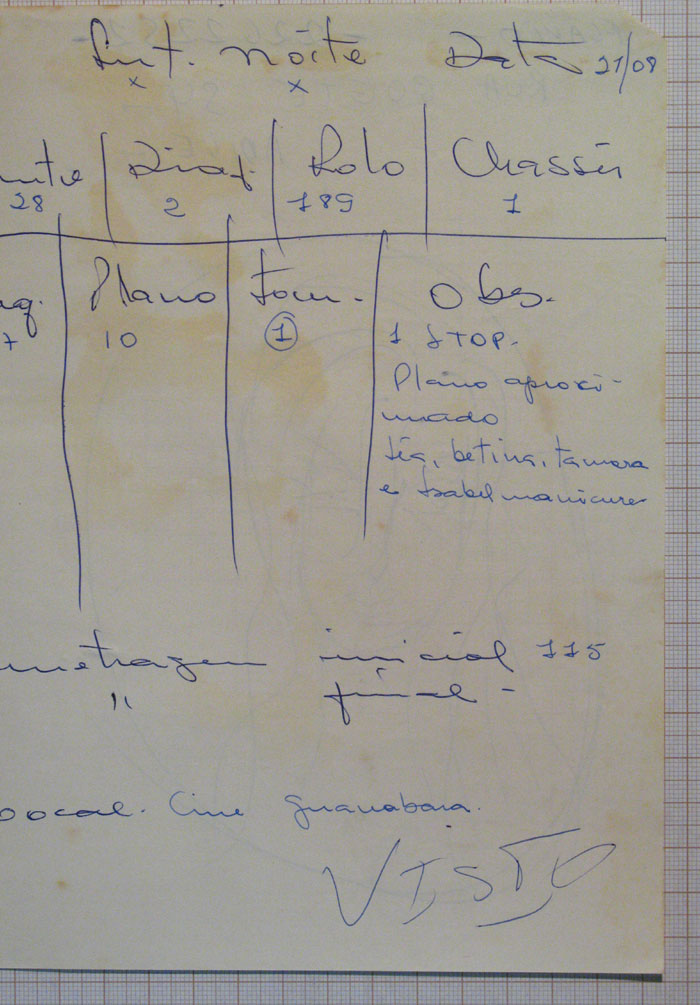 Int. noite Data 21/08
x x
Diaf. Rolo Chassis
28 2 189 1
Plano Tom. Obs.
7 10 1 1 STOP.
Plano aproxi-
mado
Léa, betina, tamara
e Isabel manicure
metragem inicial 115
" final -
Local. Cine Guanabara.
VISTO